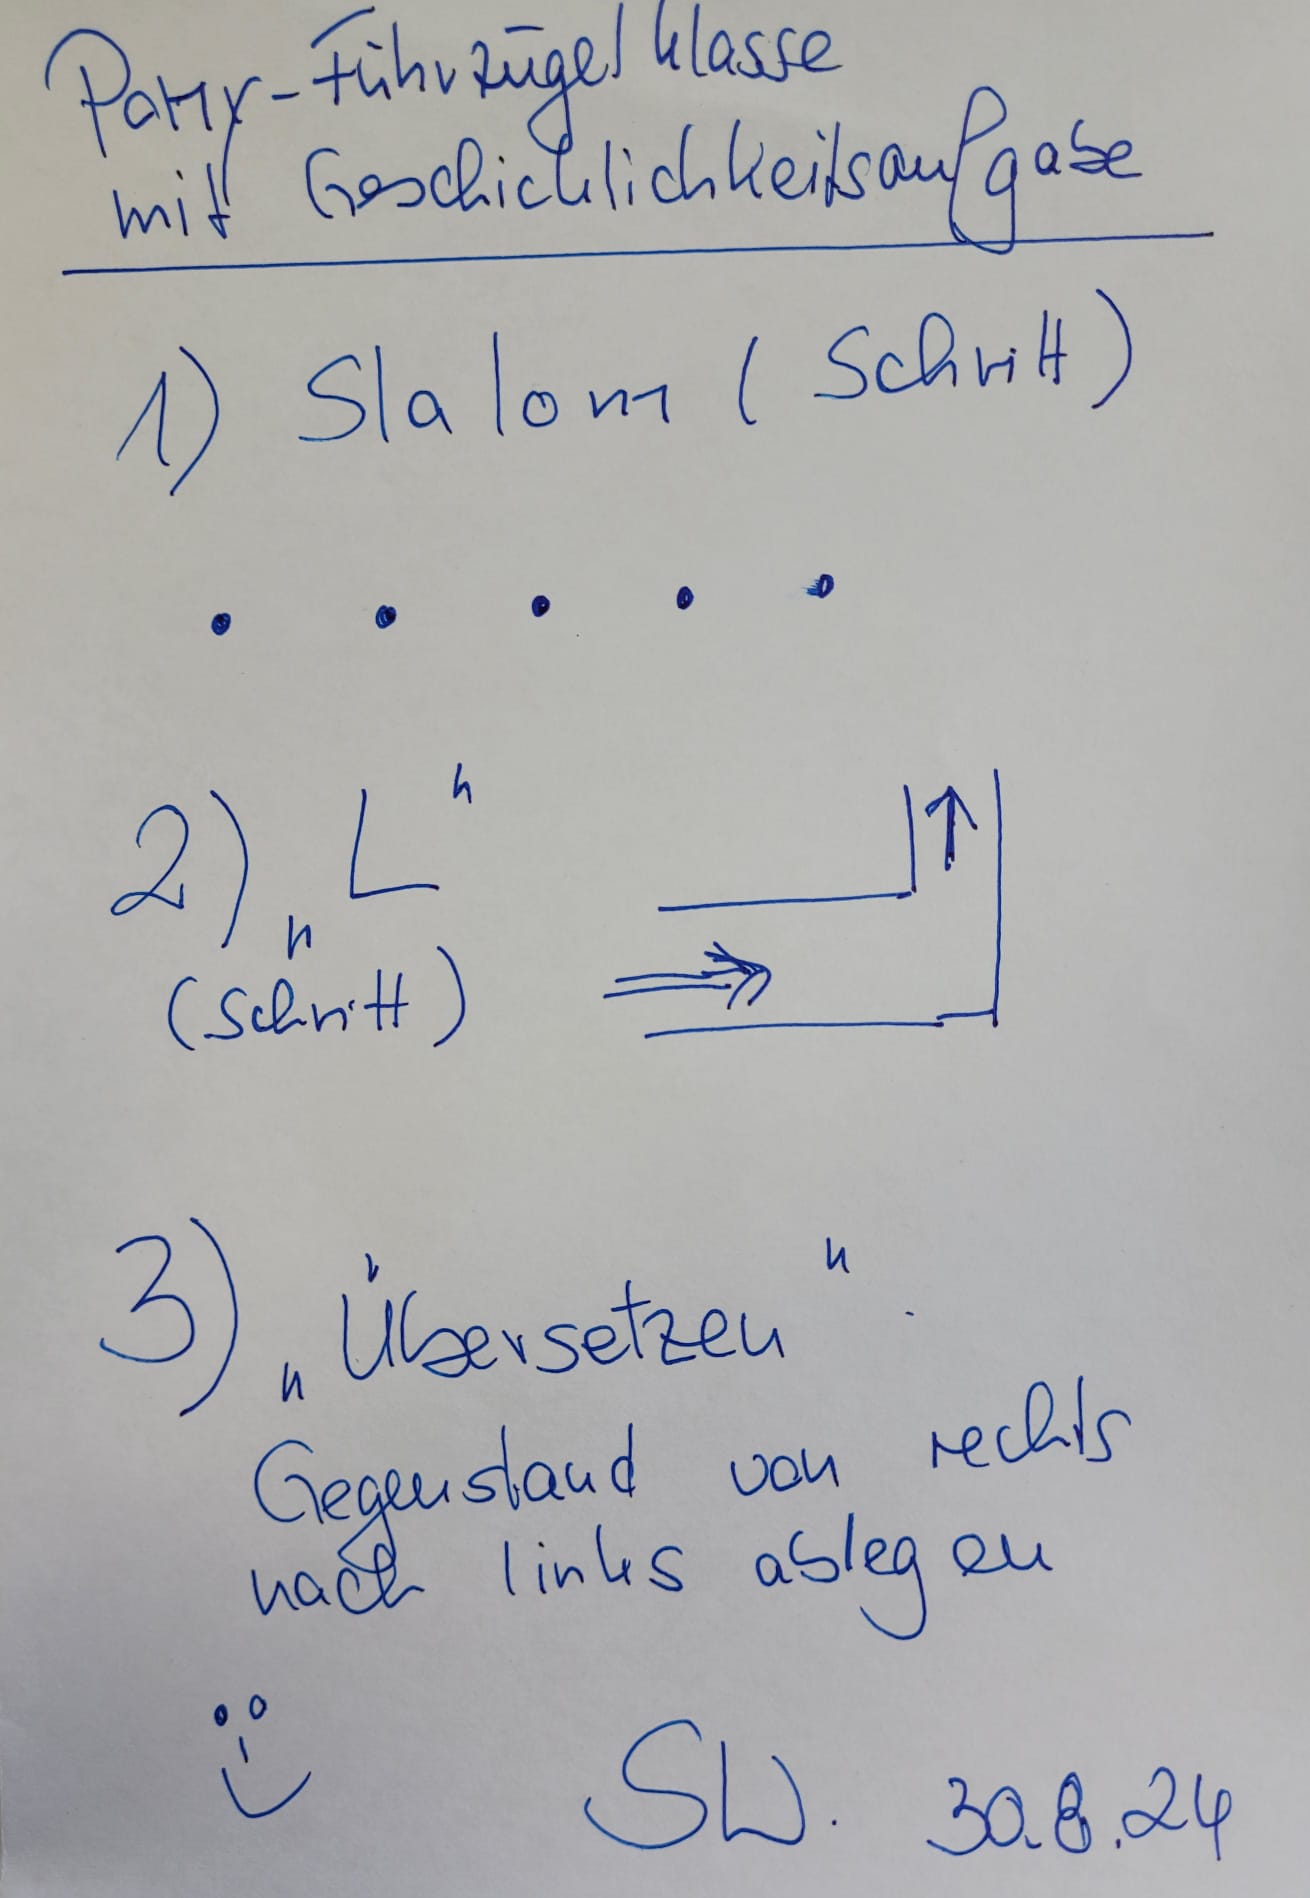 Pony-Führzügelklasse
mit Geschicklichkeitsaufgabe
1) Slalom (Schritt)
2) „L"
(Schritt)
3) „Übersetzen"
Gegenstand von rechts
nach links ablegen
SW. 30.8.24